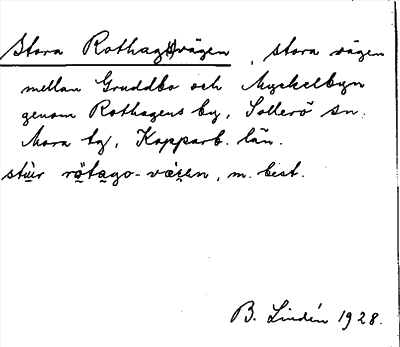 Stora Rothagsvägen, stora vägen
mellan Gruddbo och Myckelbyn
genom Rothagens by, Sollerö sn.
Mora tg, Kopparb. län.
stu̇r rötago-vä̇ġen, m. best.
B. Lindén 1928.